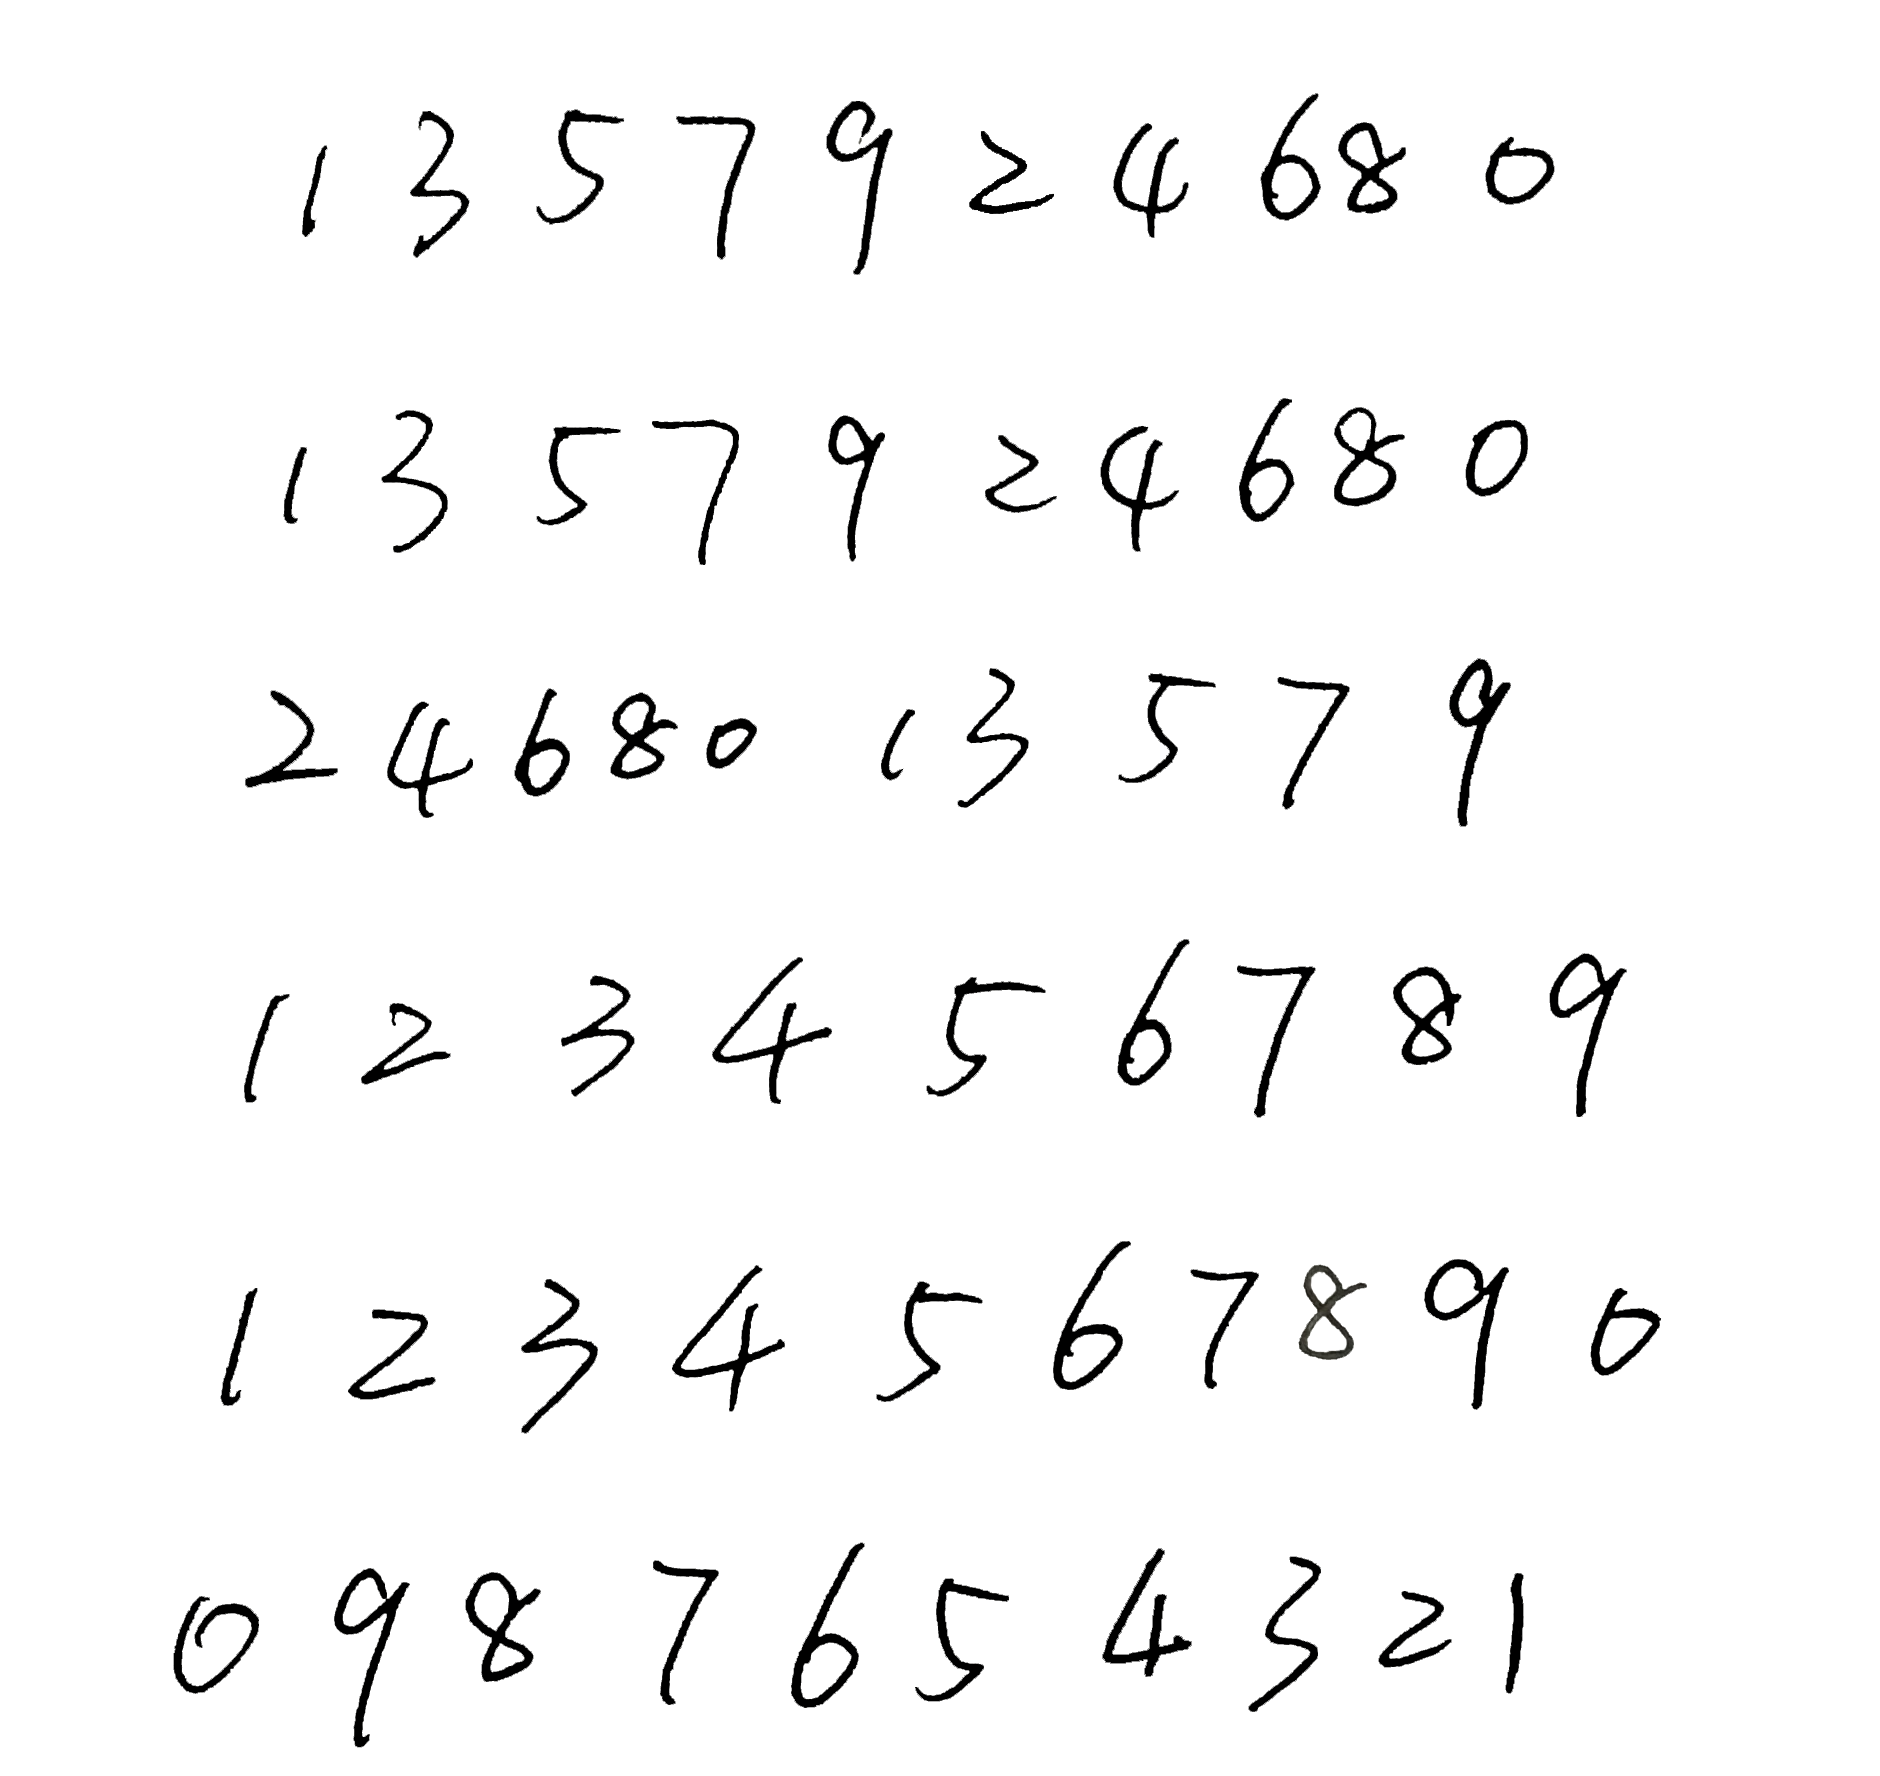 1 3 5 7 9 2 4 6 8 0
1 3 5 7 9 2 4 6 8 0
2 4 6 8 0 1 3 5 7 9
1 2 3 4 5 6 7 8 9
1 2 3 4 5 6 7 8 9 0
0 9 8 7 6 5 4 3 2 1